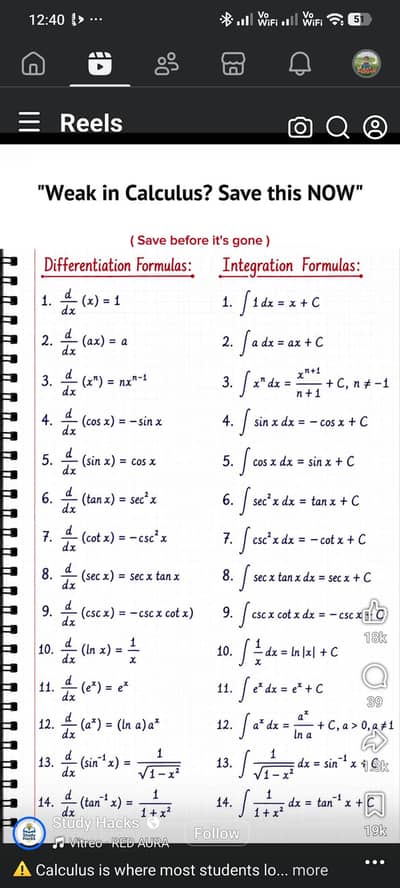 12:40
Vo WiFi Vo WiFi 51
Reels
"Weak in Calculus? Save this NOW"
( Save before it's gone )
Differentiation Formulas:
1. d/dx (x) = 1
2. d/dx (ax) = a
3. d/dx (xⁿ) = nxⁿ⁻¹
4. d/dx (cos x) = −sin x
5. d/dx (sin x) = cos x
6. d/dx (tan x) = sec² x
7. d/dx (cot x) = −csc² x
8. d/dx (sec x) = sec x tan x
9. d/dx (csc x) = −csc x cot x)
10. d/dx (ln x) = 1/x
11. d/dx (eˣ) = eˣ
12. d/dx (aˣ) = (ln a)aˣ
13. d/dx (sin⁻¹ x) = 1/√1−x²
14. d/dx (tan⁻¹ x) = 1/1+x²
Integration Formulas:
1. ∫ 1 dx = x + C
2. ∫ a dx = ax + C
3. ∫ xⁿ dx = xⁿ⁺¹/n+1 + C, n ≠ −1
4. ∫ sin x dx = − cos x + C
5. ∫ cos x dx = sin x + C
6. ∫ sec² x dx = tan x + C
7. ∫ csc² x dx = − cot x + C
8. ∫ sec x tan x dx = sec x + C
9. ∫ csc x cot x dx = − csc x + C
10. ∫ 1/x dx = ln |x| + C
11. ∫ eˣ dx = eˣ + C
12. ∫ aˣ dx = aˣ/ln a + C, a > 0, a ≠ 1
13. ∫ 1/√1−x² dx = sin⁻¹ x + C
14. ∫ 1/1+x² dx = tan⁻¹ x + C
18k
39
19k
Study Hacks
Follow
Vitreo RED AURA
Calculus is where most students lo... more